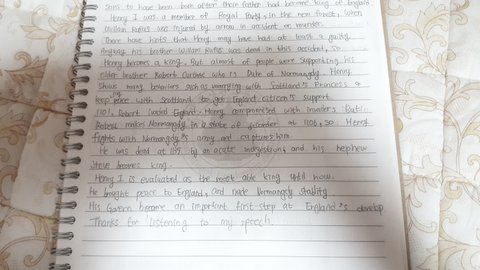 Sons to have been born after their father had become king of England
Henry I was a member of Royal Party, in the new forest, when
William Rufus was injured by arrow in accident or murder.
There have hints that Henry may have had at least a guilty.
Anyway his brother William Rufus was dead in this accident, so
Henry becomes a king. But almost of people were supporting his
elder brother Robert Curthose who is Duke of Normandy. Henry
shows many behaviors such as marrying with Scotland's Princess &
keep peace with Scotland to get England citizen's support.
1101, Robert invaded England. Henry compromised with invaders. But
Robert makes Normandy in a state of disorder at 1106, so Henry
fights with Normandy's army and captures him
He was dead at by an acute indigestion, and his nephew
Steve becomes king.
Henry I is evaluated as the most able king until now.
He brought peace to England, and made Normandy stability
His Govern become an important first-step at England's develop
Thanks for listening to my speech.